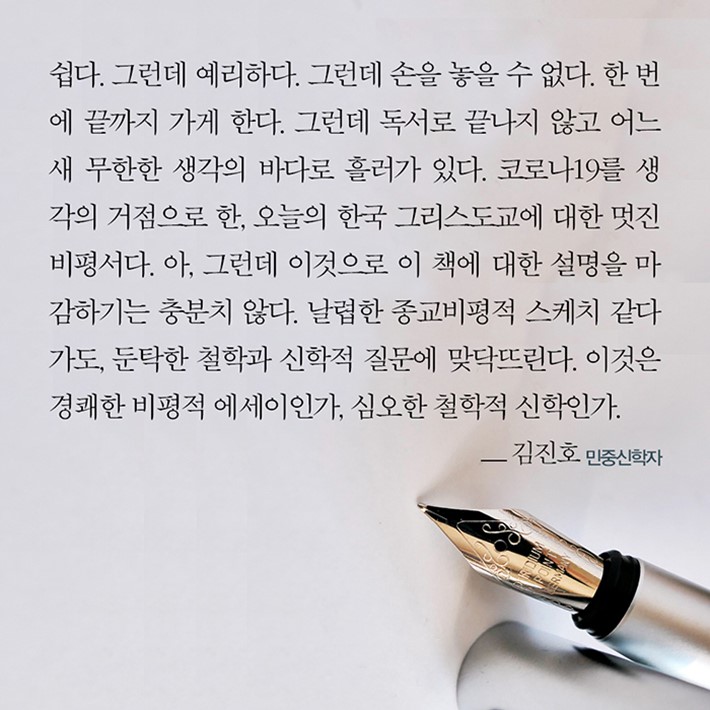 쉽다. 그런데 예리하다. 그런데 손을 놓을 수 없다. 한 번
에 끝까지 가게 한다. 그런데 독서로 끝나지 않고 어느
새 무한한 생각의 바다로 흘러가 있다. 코로나19를 생
각의 거점으로 한, 오늘의 한국 그리스도교에 대한 멋진
비평서다. 아, 그런데 이것으로 이 책에 대한 설명을 마
감하기는 충분치 않다. 날렵한 종교비평적 스케치 같다
가도, 둔탁한 철학과 신학적 질문에 맞닥뜨린다. 이것은
경쾌한 비평적 에세이인가, 심오한 철학적 신학인가.
— 김진호 민중신학자
IRIDIUM
POINT
GERMANY